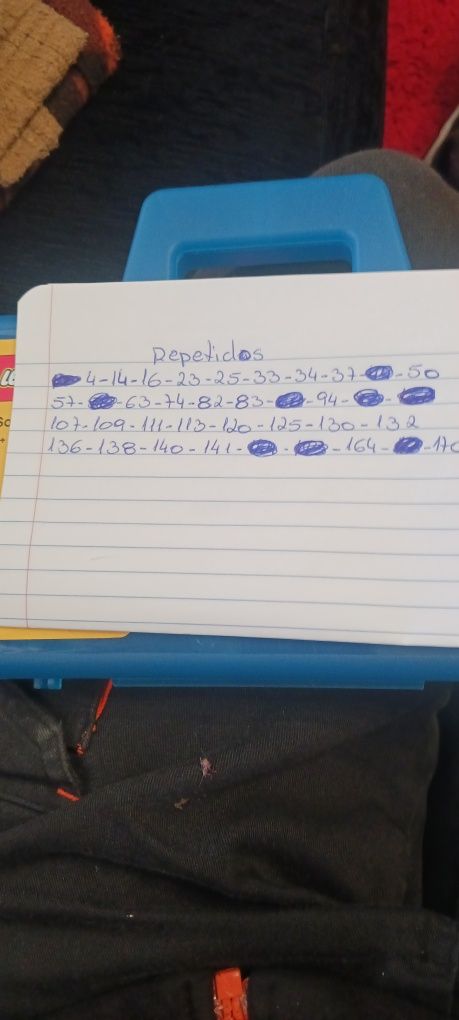 Repetidos
4-14-16-23-25-33-34-37- -50
57- -63-74-82-83- -94- -
107-109-111-113-120-125-130-132
136-138-140-141- - -164- -170